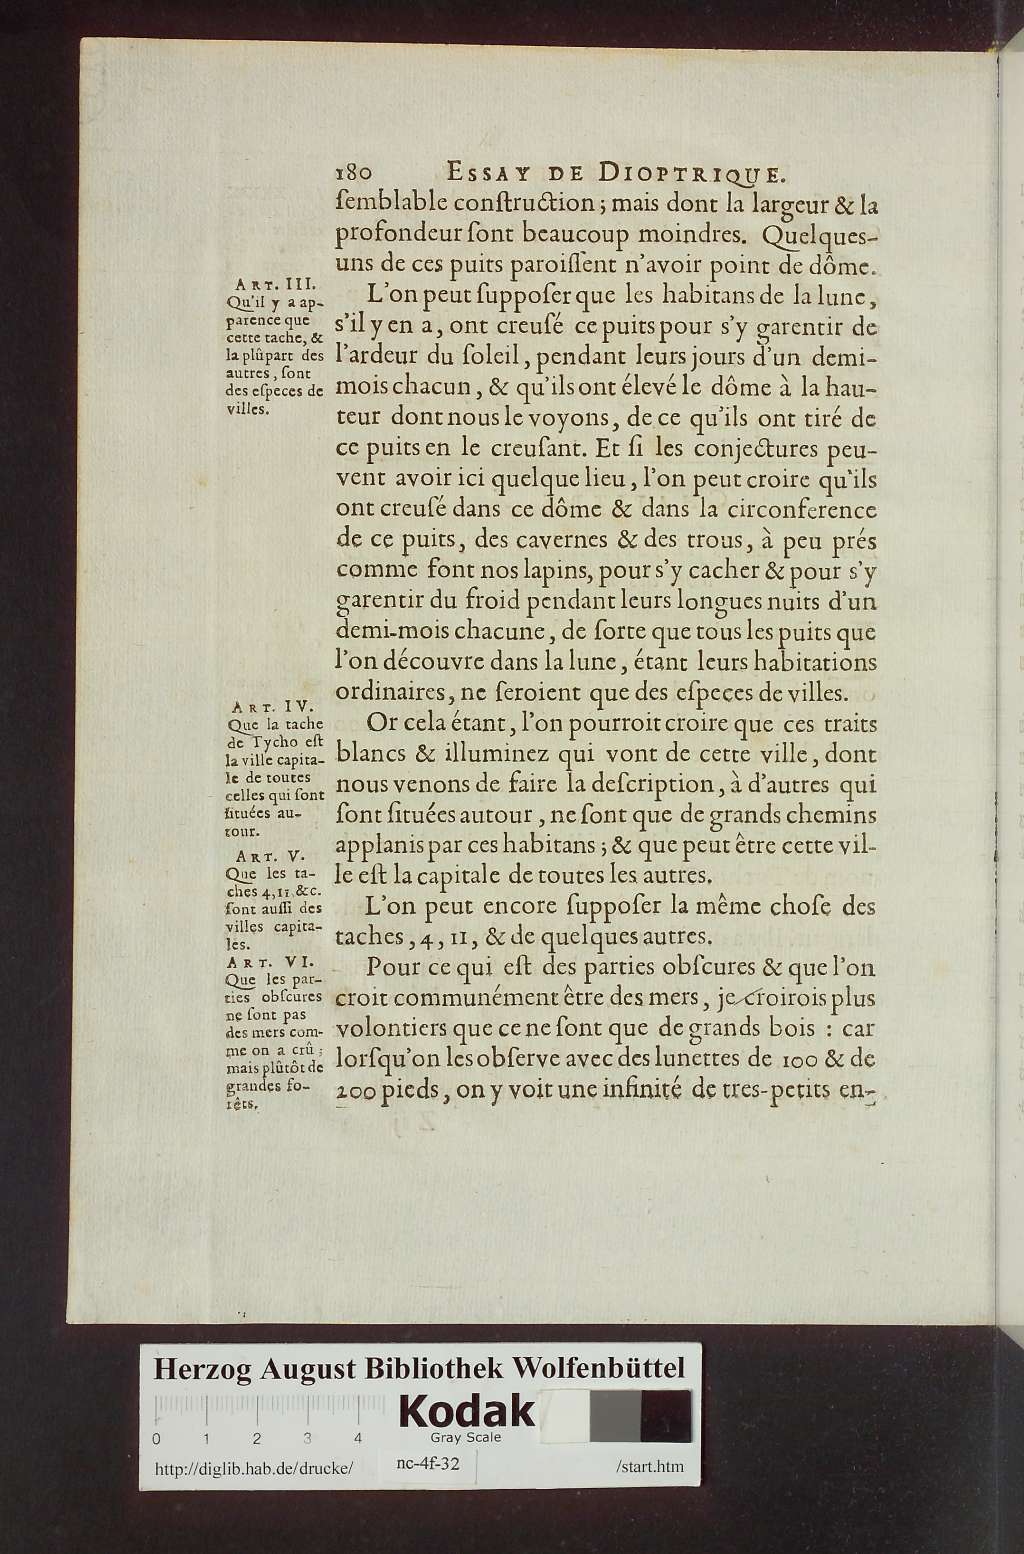 180 ESSAY DE DIOPTRIQUE.
ſemblable conſtruction; mais dont la largeur & la
profondeur ſont beaucoup moindres. Quelques-
uns de ces puits paroiſſent n'avoir point de dôme.
ART. III.
Qu'il y a ap-
parence que
cette tache, &
la plûpart des
autres, ſont
des eſpeces de
villes.
L'on peut ſuppoſer que les habitans de la lune,
s'il y en a, ont creuſé ce puits pour s'y garentir de
l'ardeur du ſoleil, pendant leurs jours d'un demi-
mois chacun, & qu'ils ont élevé le dôme à la hau-
teur dont nous le voyons, de ce qu'ils ont tiré de
ce puits en le creuſant. Et ſi les conjectures peu-
vent avoir ici quelque lieu, l'on peut croire qu'ils
ont creuſé dans ce dôme & dans la circonference
de ce puits, des cavernes & des trous, à peu prés
comme font nos lapins, pour s'y cacher & pour s'y
garentir du froid pendant leurs longues nuits d'un
demi-mois chacune, de ſorte que tous les puits que
l'on découvre dans la lune, étant leurs habitations
ordinaires, ne ſeroient que des eſpeces de villes.
ART. IV.
Que la tache
de Tycho eſt
la ville capita-
le de toutes
celles qui ſont
ſituées au-
tour.
Or cela étant, l'on pourroit croire que ces traits
blancs & illuminez qui vont de cette ville, dont
nous venons de faire la deſcription, à d'autres qui
ſont ſituées autour, ne ſont que de grands chemins
applanis par ces habitans; & que peut être cette vil-
le eſt la capitale de toutes les autres.
ART. V.
Que les ta-
ches 4, 11, &c.
ſont auſſi des
villes capita-
les.
L'on peut encore ſuppoſer la même choſe des
taches, 4, 11, & de quelques autres.
ART. VI.
Que les par-
ties obſcures
ne ſont pas
des mers com-
me on a crû;
mais plûtôt de
grandes fo-
rêts.
Pour ce qui eſt des parties obſcures & que l'on
croit communément être des mers, je croirois plus
volontiers que ce ne ſont que de grands bois : car
lorſqu'on les obſerve avec des lunettes de 100 & de
200 pieds, on y voit une infinité de tres-petits en-
Herzog August Bibliothek Wolfenbüttel
Kodak
Gray Scale
0 1 2 3 4
http://diglib.hab.de/drucke/ nc-4f-32 /start.htm